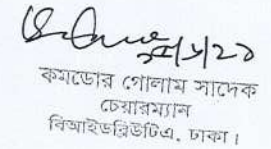 ২৮/১/২১
কমডোর গোলাম সাদেক
চেয়ারম্যান
বিআইডব্লিউটিএ, ঢাকা।